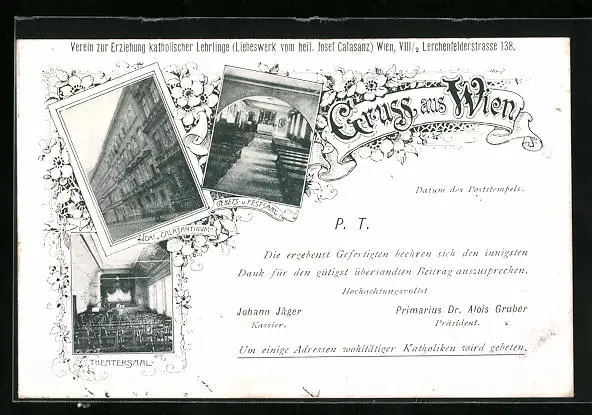 Verein zur Erziehung katholischer Lehrlinge (Liebeswerk vom heil. Josef Calasanz) Wien, VIII/2 Lerchenfelderstrasse 138.
Gruss aus Wien
GEBETS- u. FESTSAAL
DAS „CALASANTINUM“
THEATERSAAL
Datum des Poststempels.
P. T.
Die ergebenst Gefertigten beehren sich den innigsten
Dank für den gütigst übersandten Beitrag auszusprechen.
Hochachtungsvollst
Johann Jäger
Kassier.
Primarius Dr. Alois Gruber
Präsident.
Um einige Adressen wohltätiger Katholiken wird gebeten.